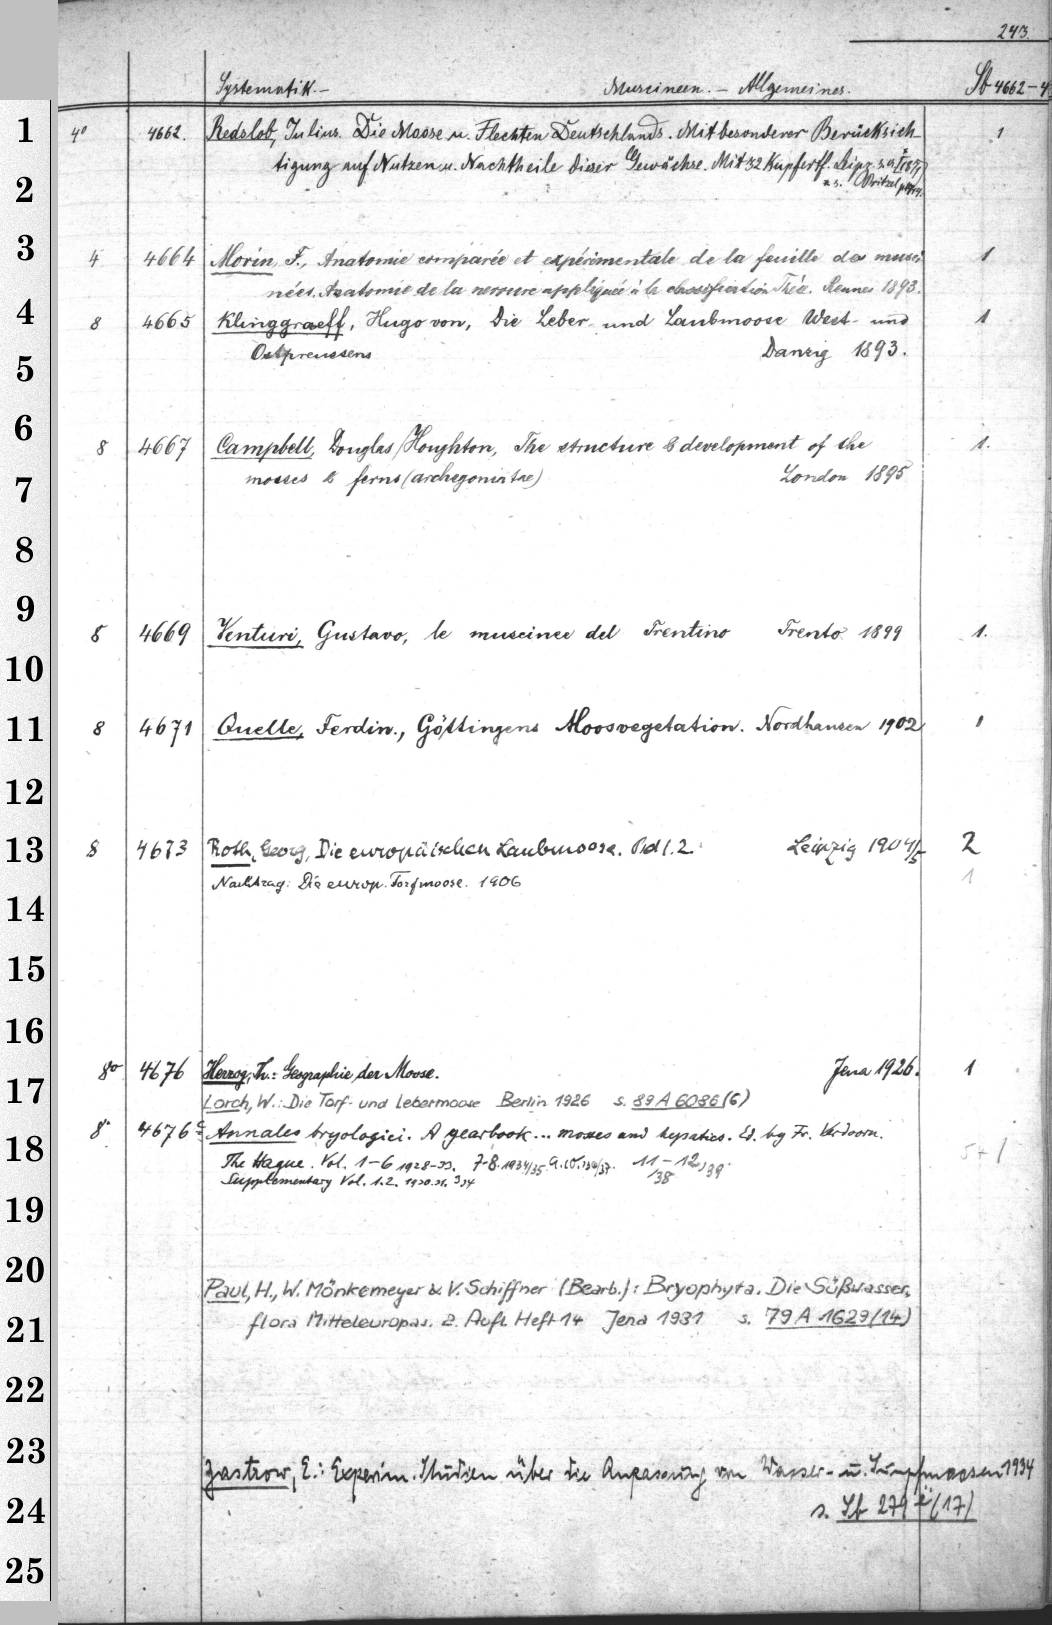 243.
Systematik.- Muscineen. - Allgemeines. Sb 4662-4
1 4° 4662. Redslob, Julius. Die Moose u. Flechten Deutschlands. Mit besonderer Berücksich 1
tigung auf Nutzen u. Nachtheile dieser Gewächse. Mit 32 Kupfertf. Leipz. s.a.
2 Pritzel
3 4 4664 Morin, F., Anatomie comparée et expérimentale de la feuille des musci 1
nées. Anatomie de la nervure appliquée à la classification Thèse. Rennes 1893.
4 8 4665 Klinggraeff, Hugo von, Die Leber- und Laubmoose West- und 1
Ostpreussens Danzig 1893.
5
6 8 4667 Campbell, Douglas Houghton, The structure & development of the 1.
mosses & ferns (archegoniatae) London 1895
7
8
9 8 4669 Venturi, Gustavo, le muscinee del Trentino Trento 1899 1.
10
11 8 4671 Quelle, Ferdin., Göttingens Moosvegetation. Nordhausen 1902 1
12
13 8 4673 Roth, Georg, Die europäischen Laubmoose. Bd 1.2. Leipzig 1904/5 2
Nachtrag: Die europ. Torfmoose. 1906 1
14
15
16
8° 4676 Herzog, Th.: Geographie der Moose. Jena 1926. 1
17 Lorch, W.: Die Torf- und Lebermoose Berlin 1926 s. 89 A 6086 (6)
8° 4676 a Annales bryologici. A yearbook... mosses and hepatics. Ed. by Fr. Verdoorn.
18 The Hague. Vol. 1-6 1928-33. 7-8. 1934/35. 9.10. 1936/37. 11-12 /38 /39. 5+1
Supplementary Vol. 1.2. 1930.31. 3 34
19
20 Paul, H., W. Mönkemeyer & V. Schiffner (Bearb.): Bryophyta. Die Süßwasser,
21 flora Mitteleuropas. 2. Aufl. Heft 14 Jena 1931 s. 79 A 1629 (14)
22
23 Jastrow, E.: Experim. Studien über die Anpassung von Wasser- u. Sumpfmoosen 1934
24 s. Sb 279 (17)
25